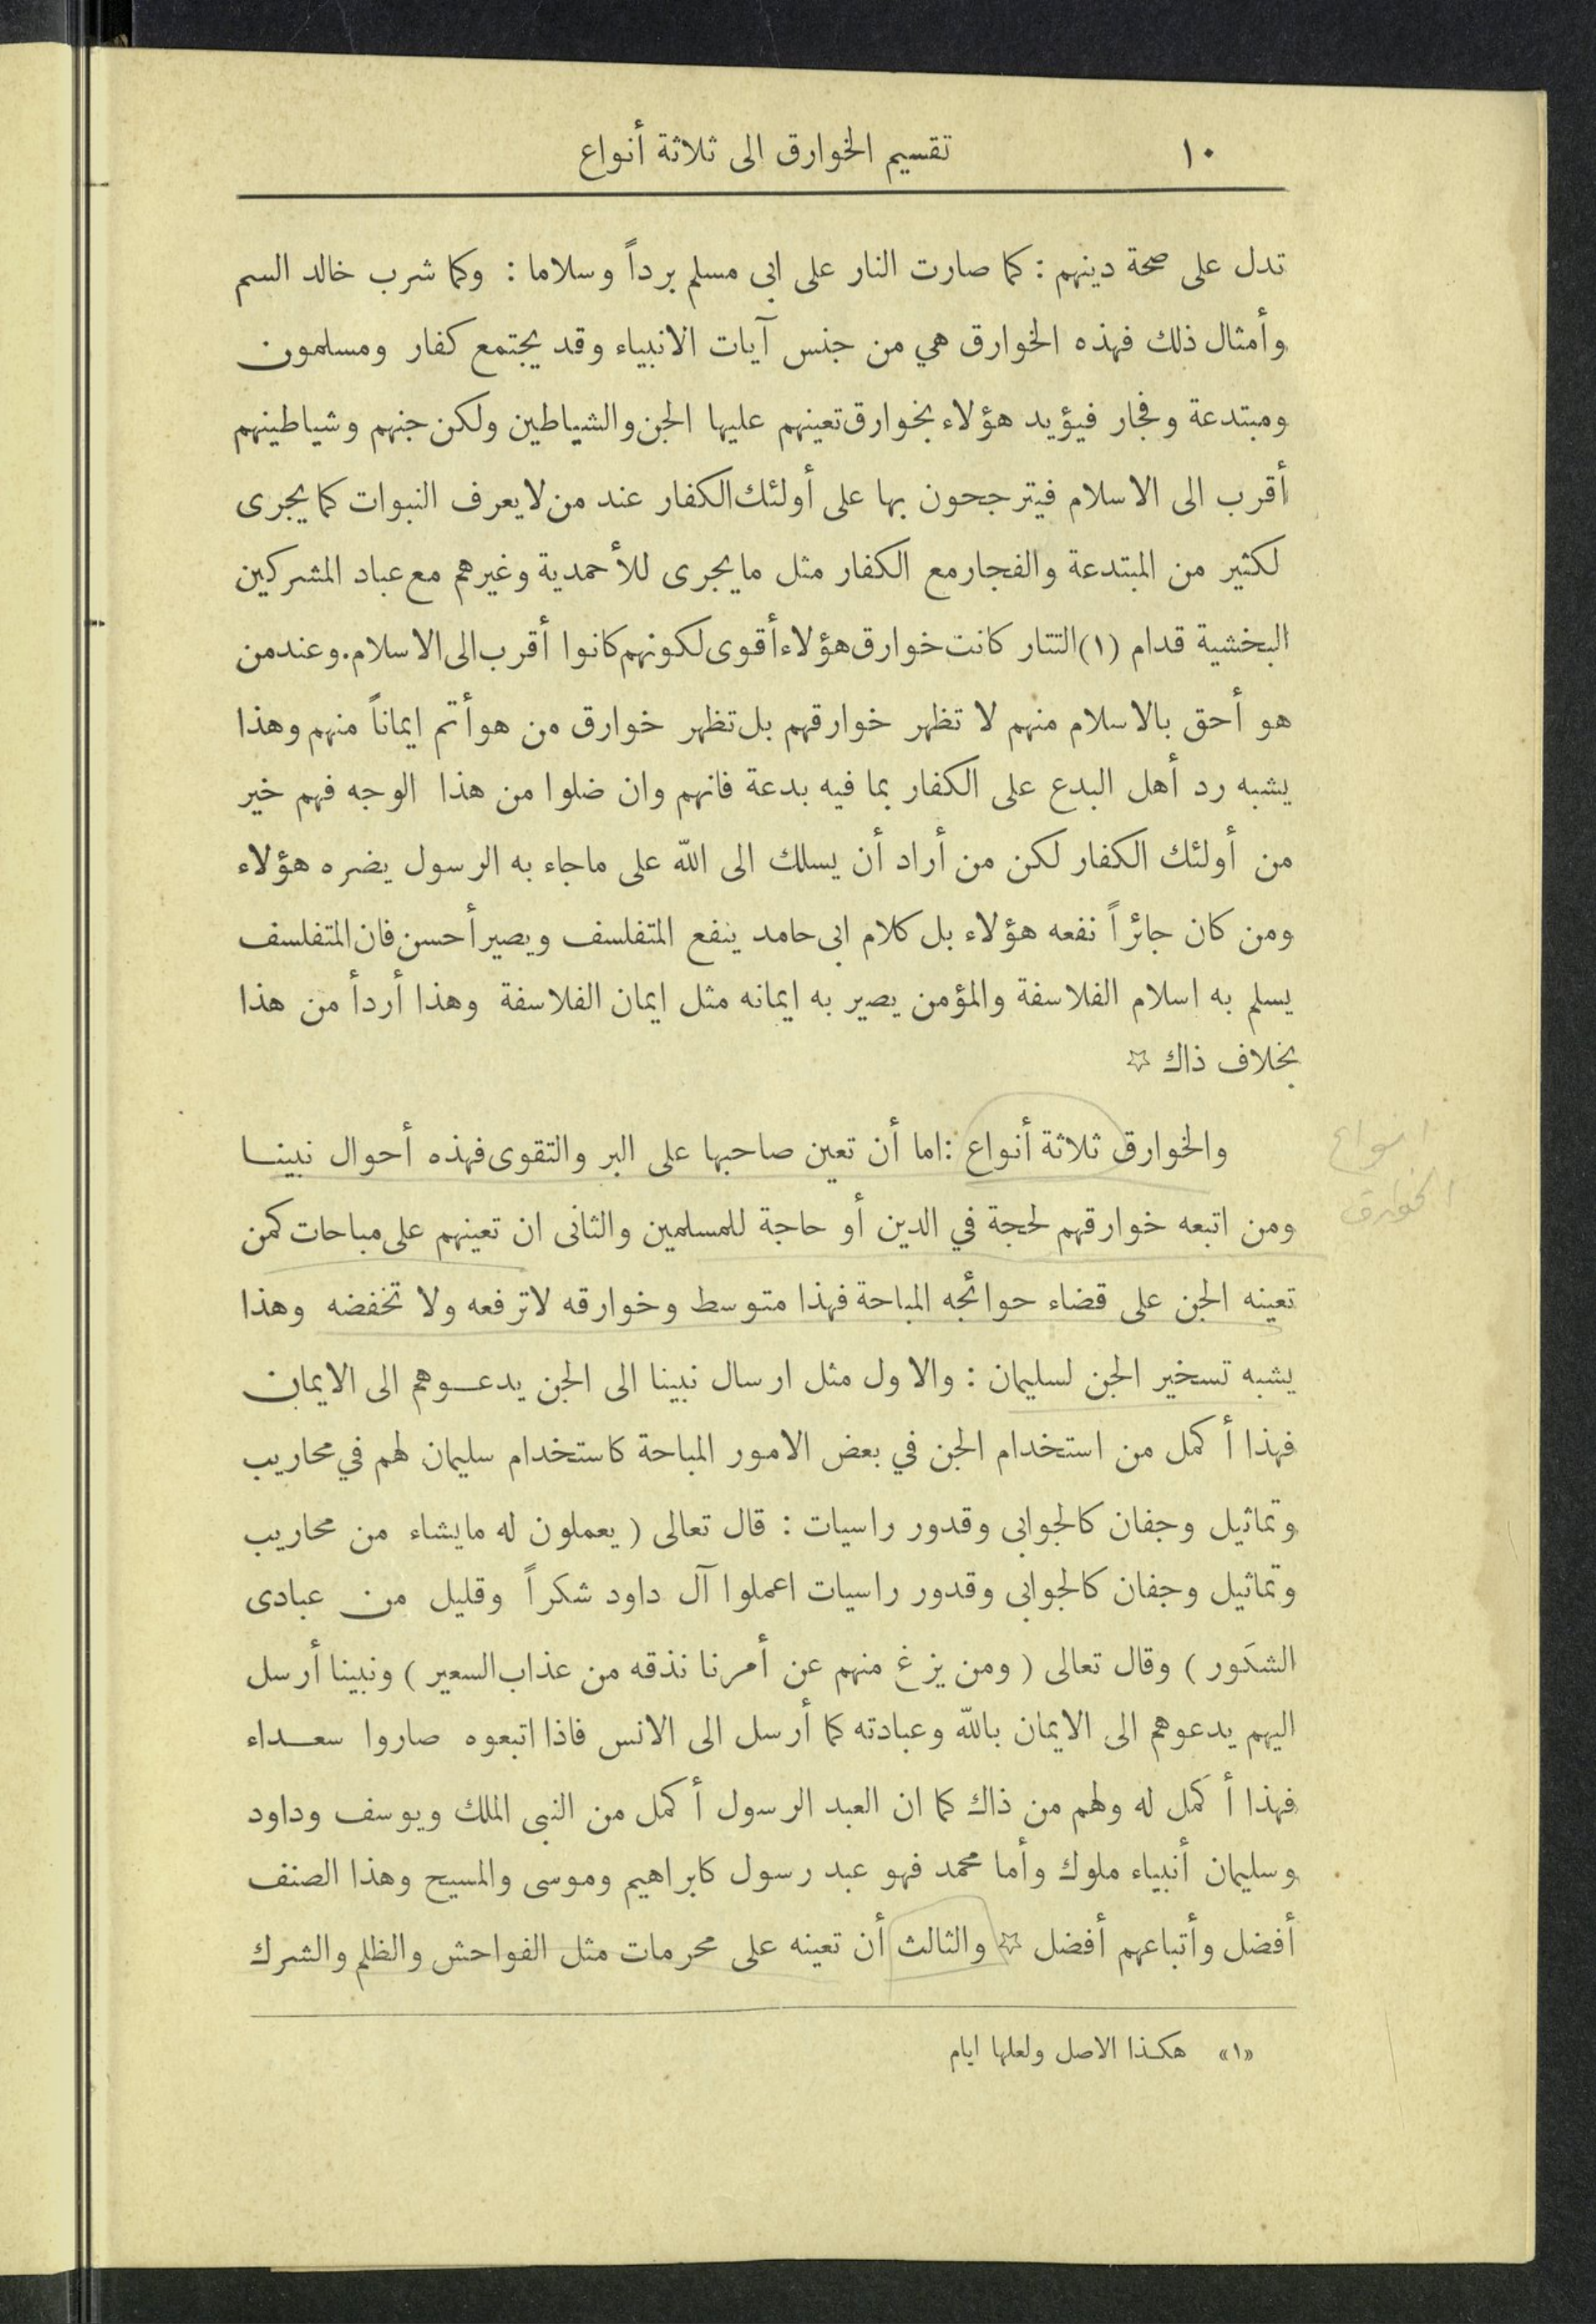 ١٠ تقسيم الخوارق الى ثلاثة أنواع
تدل على صحة دينهم : كما صارت النار على ابى مسلم برداً وسلاما : وكما شرب خالد السم
وأمثال ذلك فهذه الخوارق هي من جنس آيات الانبياء وقد يجتمع كفار ومسلمون
ومبتدعة وفجار فيؤيد هؤلاء بخوارق تعينهم عليها الجن والشياطين ولكن جنهم وشياطينهم
أقرب الى الاسلام فيترجحون بها على أولئك الكفار عند من لا يعرف النبوات كما يجرى
لكثير من المبتدعة والفجار مع الكفار مثل ما يجرى للأحمدية وغيرهم مع عباد المشركين
البخشية قدام (١) التتار كانت خوارق هؤلاء أقوى لكونهم كانوا أقرب الى الاسلام. وعند من
هو أحق بالاسلام منهم لا تظهر خوارقهم بل تظهر خوارق من هو أتم ايماناً منهم وهذا
يشبه رد أهل البدع على الكفار بما فيه بدعة فانهم وان ضلوا من هذا الوجه فهم خير
من أولئك الكفار لكن من أراد أن يسلك الى الله على ماجاء به الرسول يضره هؤلاء
ومن كان جائراً نفعه هؤلاء بل كلام ابى حامد ينفع المتفلسف ويصير أحسن فان المتفلسف
يسلم به اسلام الفلاسفة والمؤمن يصير به ايمانه مثل ايمان الفلاسفة وهذا أردأ من هذا
بخلاف ذاك ☆
والخوارق ثلاثة أنواع : اما أن تعين صاحبها على البر والتقوى فهذه أحوال نبينا
انواع
الخوارق
ومن اتبعه خوارقهم لحجة في الدين أو حاجة للمسلمين والثانى ان تعينهم على مباحات كمن
تعينه الجن على قضاء حوائجه المباحة فهذا متوسط وخوارقه لاترفعه ولا تخفضه وهذا
يشبه تسخير الجن لسليمان : والاول مثل ارسال نبينا الى الجن يدعوهم الى الايمان
فهذا أكمل من استخدام الجن في بعض الامور المباحة كاستخدام سليمان لهم في محاريب
وتماثيل وجفان كالجوابى وقدور راسيات : قال تعالى ( يعملون له مايشاء من محاريب
وتماثيل وجفان كالجوابى وقدور راسيات اعملوا آل داود شكراً وقليل من عبادى
الشكور ) وقال تعالى ( ومن يزغ منهم عن أمرنا نذقه من عذاب السعير ) ونبينا أرسل
اليهم يدعوهم الى الايمان بالله وعبادته كما أرسل الى الانس فاذا اتبعوه صاروا سعداء
فهذا أكمل له ولهم من ذاك كما ان العبد الرسول أكمل من النبى الملك ويوسف وداود
وسليمان أنبياء ملوك وأما محمد فهو عبد رسول كابراهيم وموسى والمسيح وهذا الصنف
أفضل وأتباعهم أفضل ☆ والثالث أن تعينه على محرمات مثل الفواحش والظلم والشرك
«١» هكذا الاصل ولعلها ايام